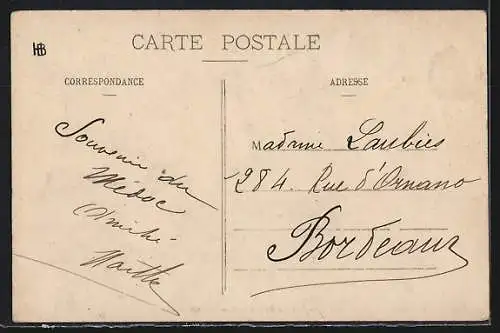 HB
CARTE POSTALE
CORRESPONDANCE
ADRESSE
Souvenir du
Médoc
Amitié
Marthe
Madame Laubies
284. Rue d'Ornano
Bordeaux